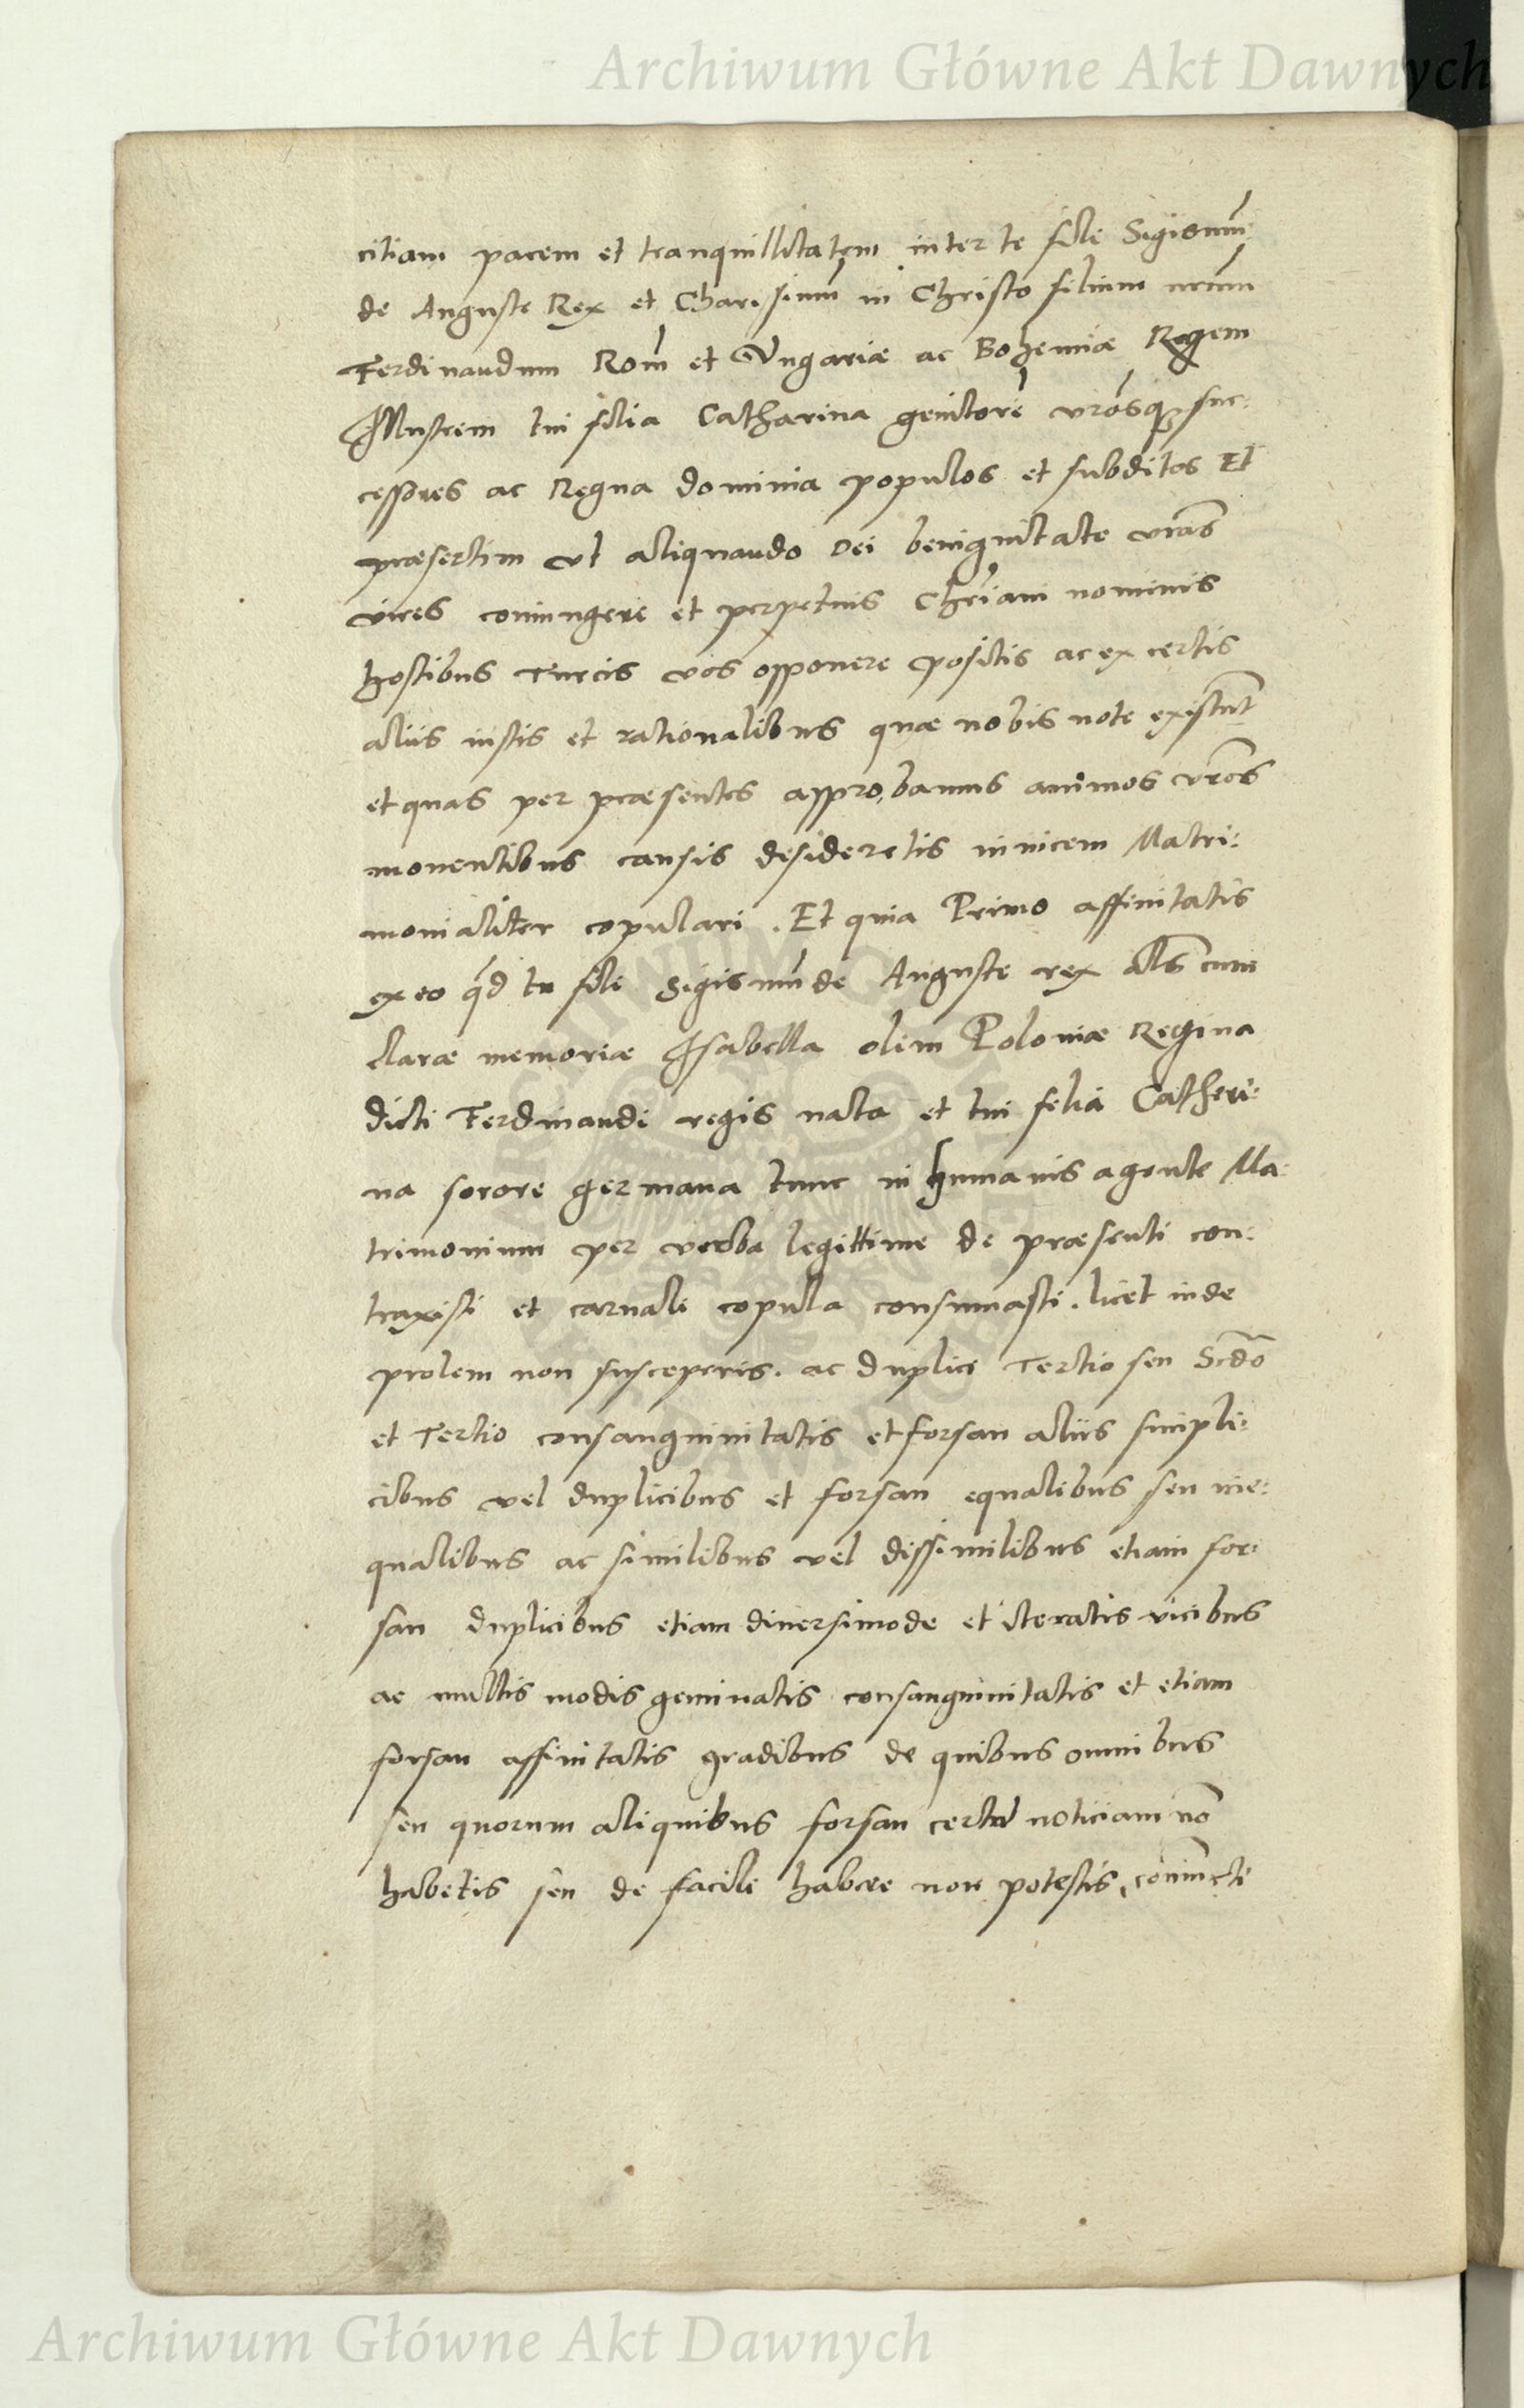 Archiwum Główne Akt Dawnych
citiam pacem et tranquillitatem inter te fili Sigismū-
de Auguste Rex et Charissimū in Christo filium nrūm
Ferdinandum Rom̄ et Vngariæ ac Bohemiæ Regem
Illustrem tui filia Catharina genitorē vrōsq; suc:
cessores ac Regna dominia populos et subditos Et
præsertim vt aliquando Dei benignitate vrās
vires coniungere et perpetuis Chr̄iani nominis
hostibus Turcis vos opponere possitis ac ex certis
aliis iustis et rationalibus quæ nobis note existūt
et quas per præsentes approbamus animos vrōs
mouentibus causis desideretis inuicem Matri:
monialiter copulari . Et quia Primo affinitatis
ex eo qd̄ tu fili Sigismūnde Auguste rex als̄ cum
claræ memoriæ Isabella olim Poloniæ Regina
dicti Ferdinandi regis nata et tui filia Catheri:
na sorore germana tunc in humanis agente Ma:
trimonium per verba legittime de præsenti con:
traxisti et carnali copula consumasti . licet inde
prolem non susceperis . ac duplici Tertio seu Scdō
et Tertio consanguinitatis et forsan aliis simpli:
cibus vel duplicibus et forsan equalibus seu ine:
qualibus ac similibus vel dissimilibus etiam for:
san duplicibus etiam diuersimode et iteratis vicibus
ac multis modis geminatis consanguinitatis et etiam
forsan affinitatis gradibus de quibus omnibus
seu quorum aliquibus forsan noticiam nō
habetis seu de facili habere non potestis, coniūcti
Archiwum Główne Akt Dawnych